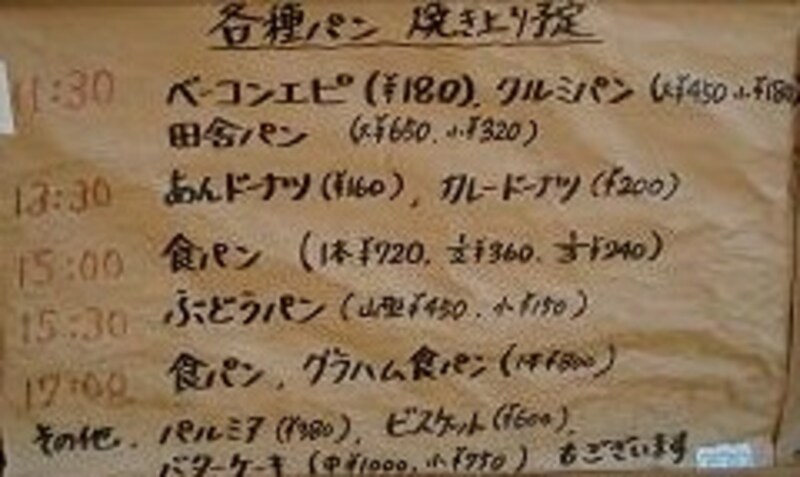 各種パン 焼き上り予定
11:30 ベーコンエピ(¥180)、クルミパン(大¥450 小¥180
田舎パン (大¥650、小¥320)
13:30 あんドーナツ(¥160)、カレードーナツ(¥200)
15:00 食パン (1本¥720、1/2¥360、1/3¥240)
15:30 ぶどうパン(山型¥450、小¥150)
17:00 食パン、グラハム食パン(1本¥800)
その他、パルミア(¥380)、ビスケット(¥600)、
バターケーキ(中¥1000、小¥750) もございます